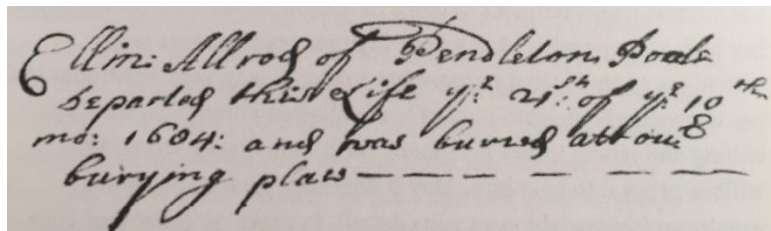 Ellin: Allrod of Pendleton Poole
departed this Life yᵉ 21ˢᵗ: of yᵉ 10ᵗʰ
mo: 1684: and was buried at our
burying place — — — — — —